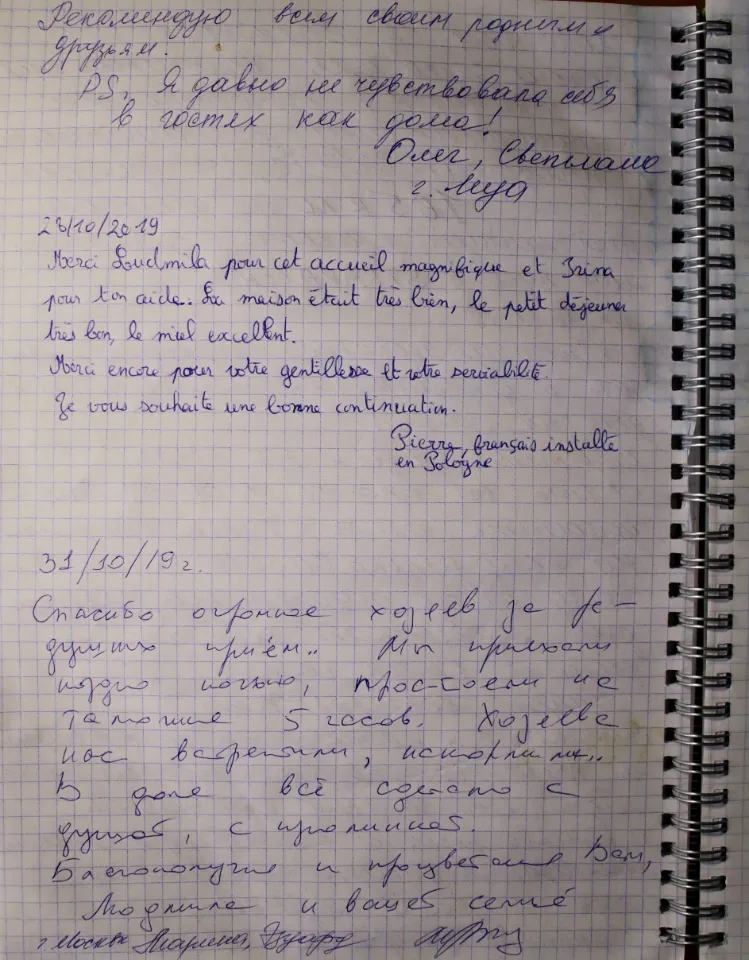 Рекомендую всем своим родным и
друзьям.
PS. Я давно не чувствовала себя
в гостях как дома!
Олег, Светлана
г. Лида
28/10/2019
Merci Loudmila pour cet accueil magnifique et Irina
pour ton aide. La maison était très bien, le petit déjeuner
très bon, le miel excellent.
Merci encore pour votre gentillesse et votre serviabilité.
Je vous souhaite une bonne continuation.
Pierre, français installé
en Pologne
31/10/19 г.
Спасибо огромное хозяев за ра-
душных приём.. Мы приехали
поздно ночью, простояли на
таможне 5 часов. Хозяева
нас встретили, накормили..
В доме всё сделано с
душой, с
и процветания Вам,
Людмила и вашей семье
г. Москва Марина,